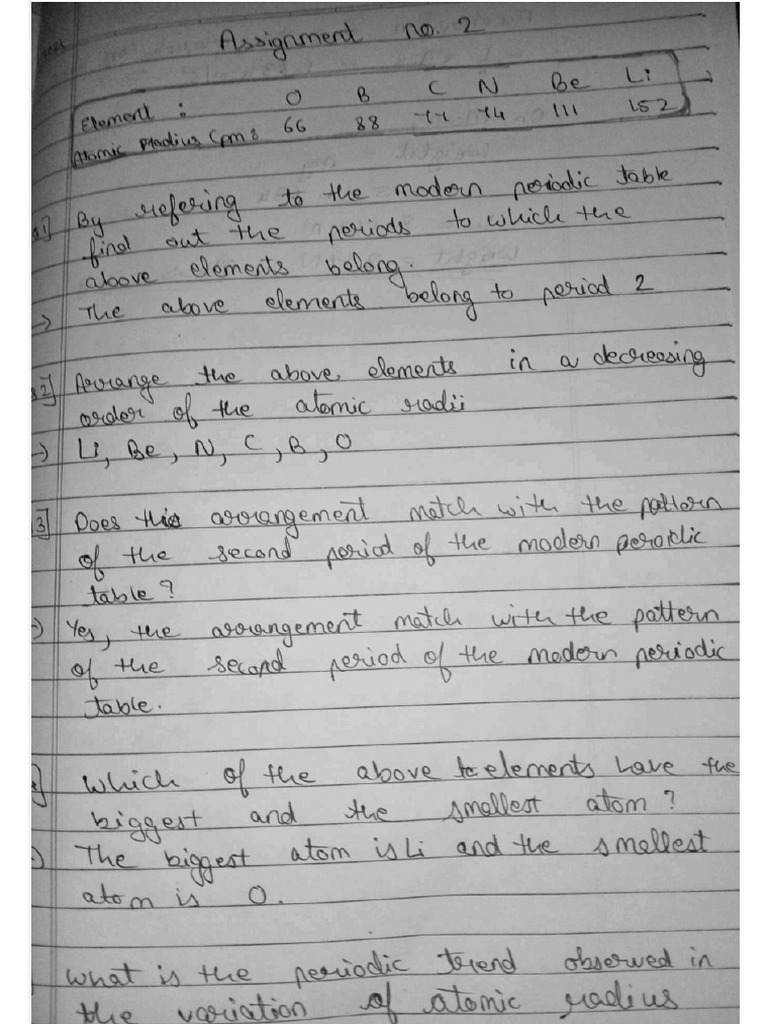 Assignment no. 2
Element : O B C N Be Li
Atomic Radius (pm : 66 88 77 74 111 152
By refering to the modern periodic table
find out the periods to which the
above elements belong.
→ The above elements belong to period 2
Arrange the above elements in a decreasing
order of the atomic radii
→ Li, Be, N, C, B, O
3] Does this arrangement match with the pattern
of the second period of the modern peroidic
table?
Yes, the arrangement match with the pattern
of the second period of the modern periodic
table.
Which of the above elements have the
biggest and the smallest atom?
The biggest atom is Li and the smallest
atom is O.
What is the periodic trend observed in
the variation of atomic radius